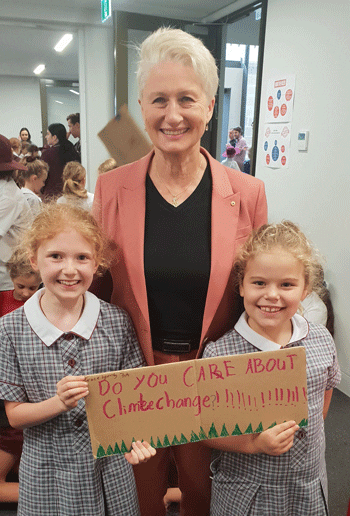 Do YOU CARE ABOUT
Climate change?!!!!!!!!!!!!!!!